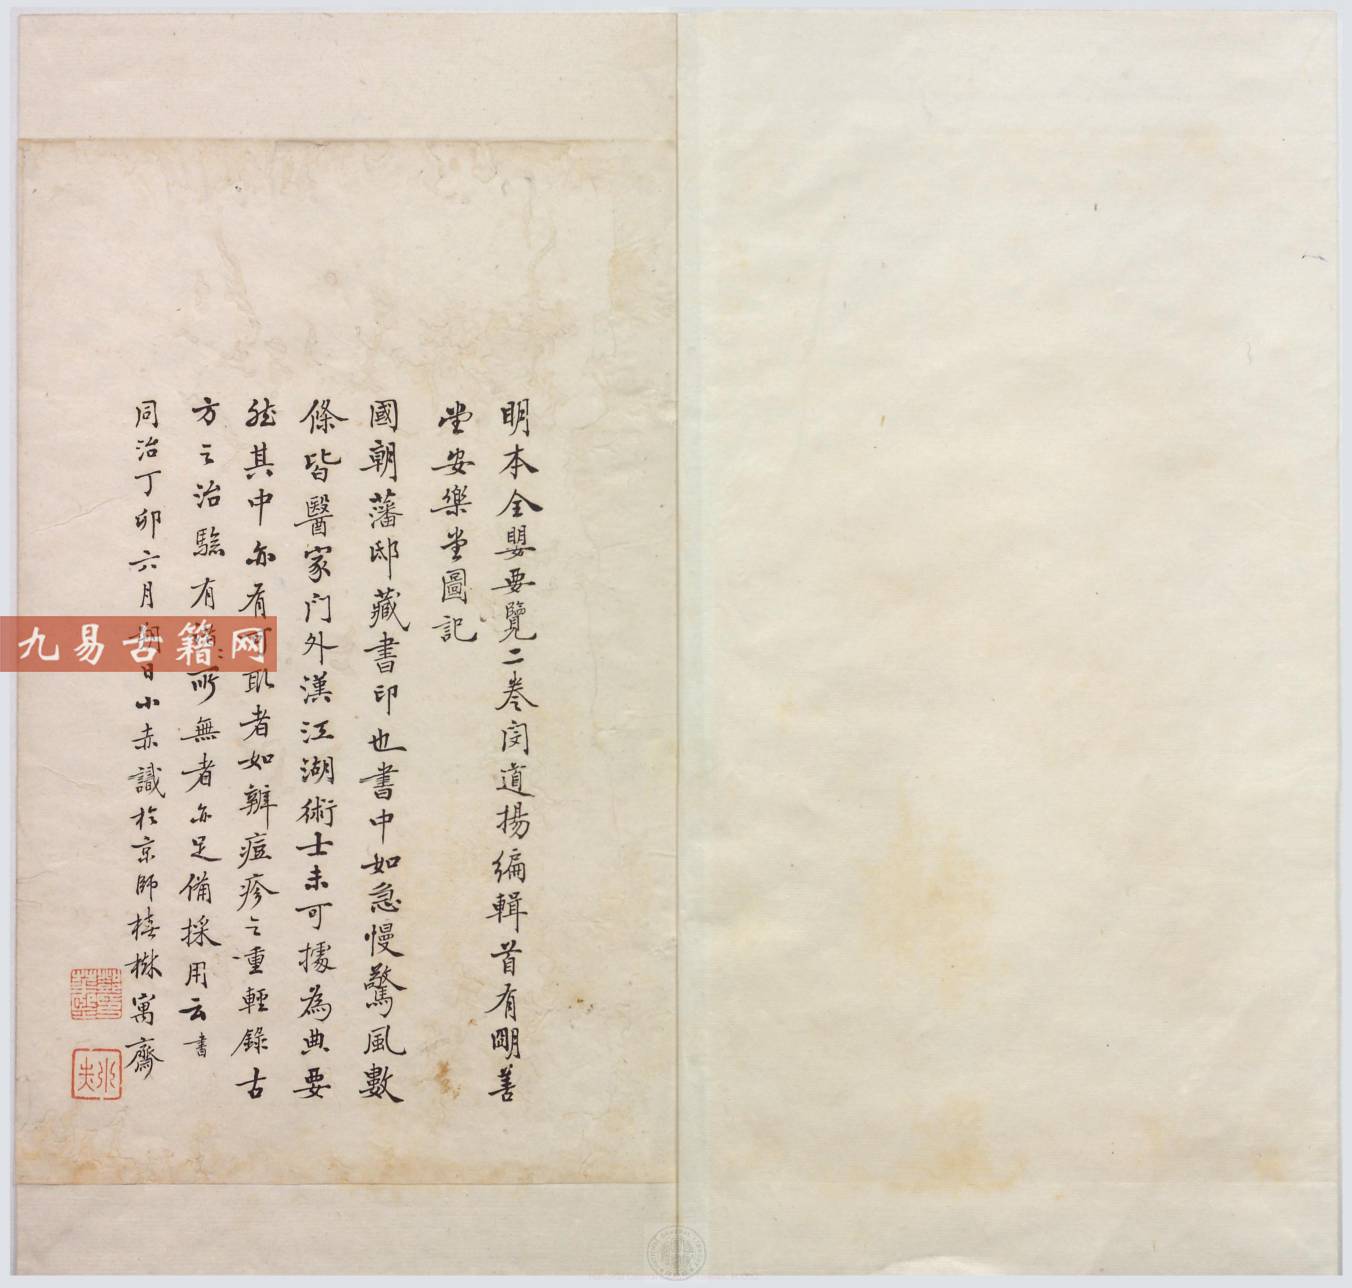 明本全嬰要覽二卷閔道揚編輯首有明善
堂安樂堂圖記
國朝藩邸藏書印也書中如急慢驚風數
條皆醫家門外漢江湖術士未可據為典要
然其中亦有可取者如辨痘疹之重輕錄古
方之治驗有 所無者亦足備採用云書
同治丁卯六月 日小赤識於京師 寓齋
九易古籍网